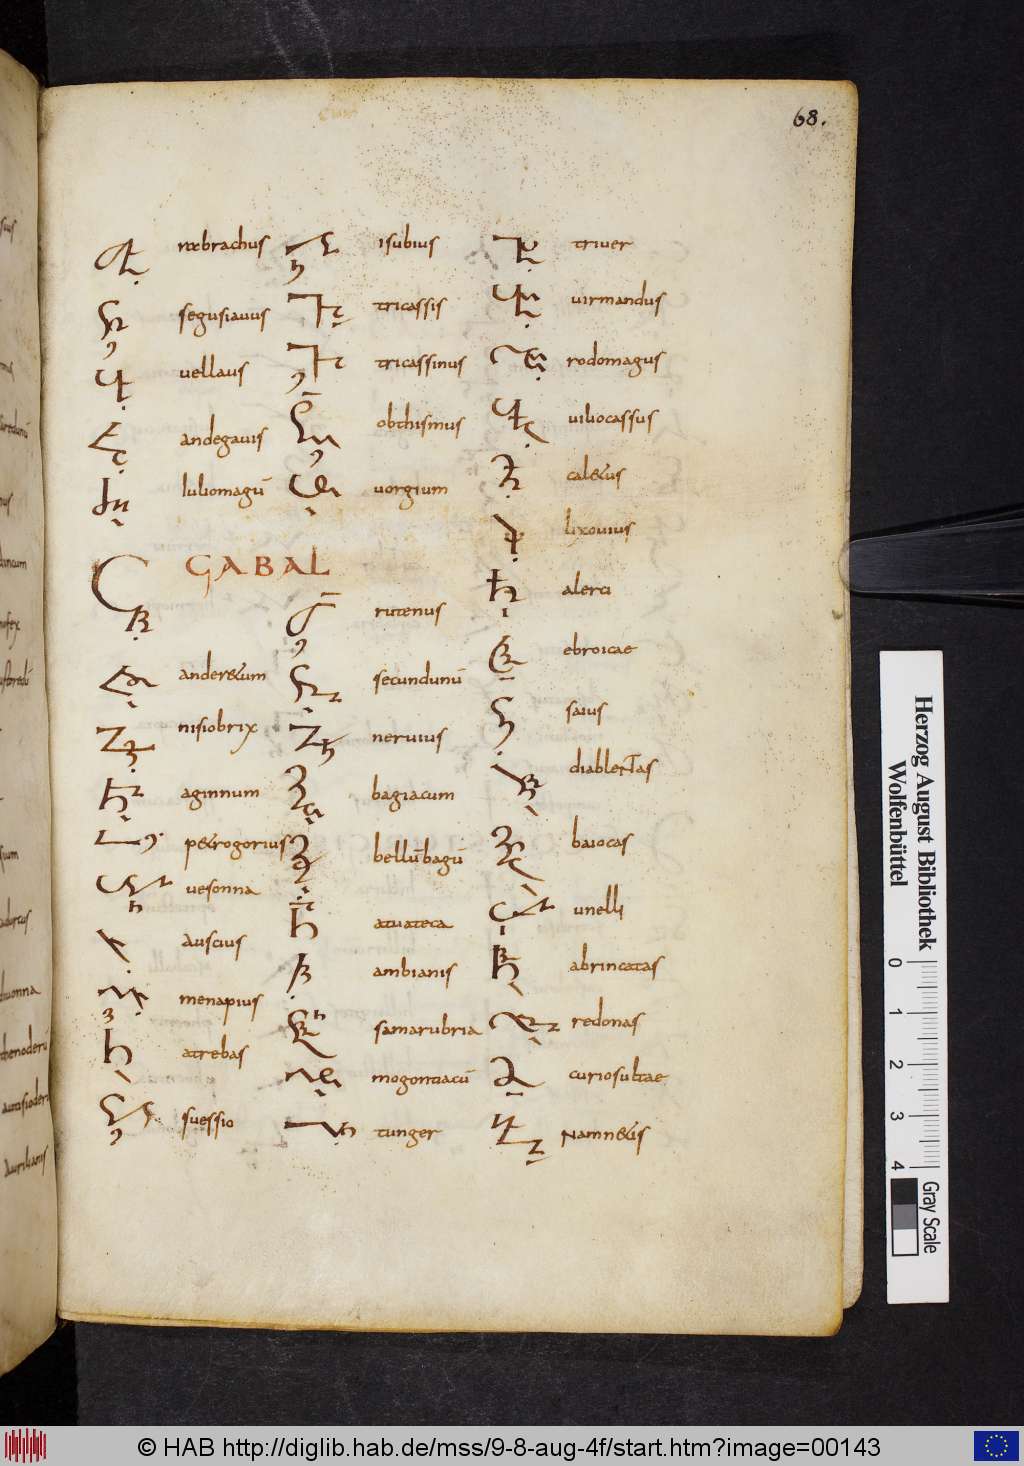 68.
segusiauus
uellaus
andegauis
luliomagū
GABAL
anderecum
nisiobrix
aginnum
petrogorius
uesonna
auscius
menapius
atrebas
suessio
isubius
tricassis
tricassinus
obthismus
uorgium
rutenus
secundunū
neruius
bagiacum
bellūbagū
atuateca
ambianis
samarubria
mogontiacū
tunger
triuer
uirmandus
rodomagus
uiliocassus
caletus
lixouius
alerci
ebroicae
saius
diablentas
baiocas
unelli
abrincatas
redonas
curiosultae
Namnetis
Herzog August Bibliothek
Wolfenbüttel
0 1 2 3 4
Gray Scale
© HAB http://diglib.hab.de/mss/9-8-aug-4f/start.htm?image=00143